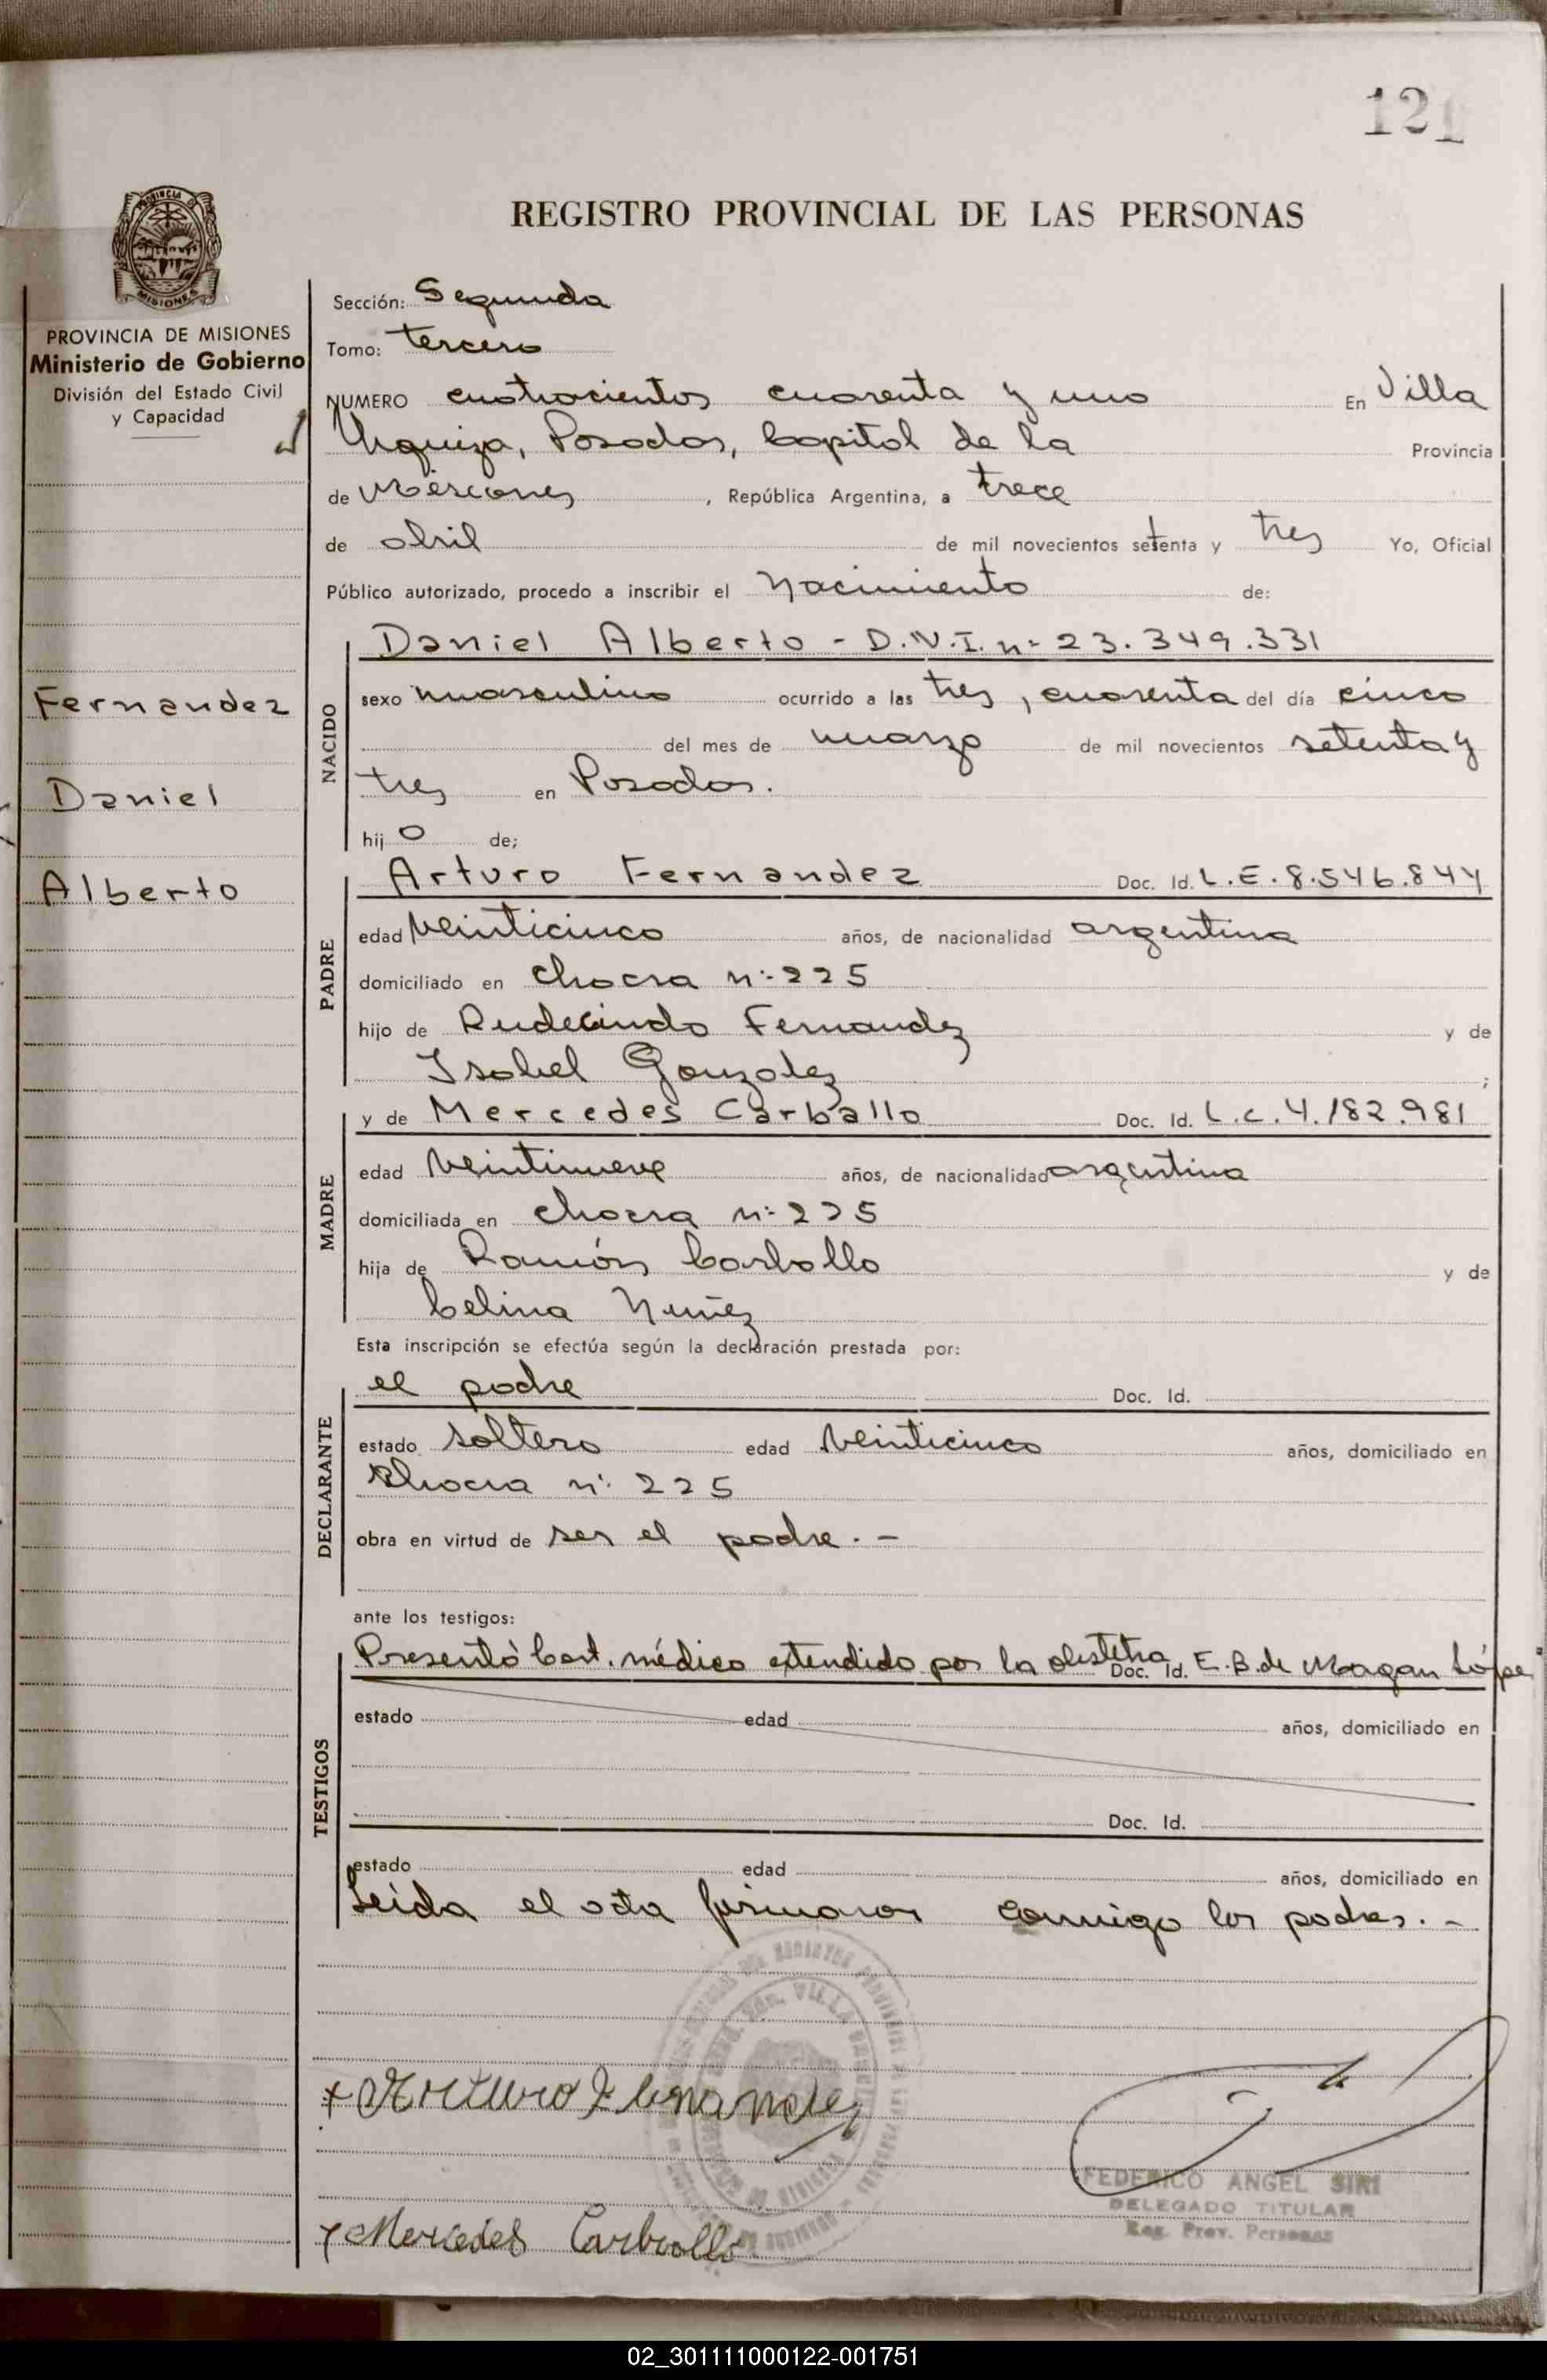 121
REGISTRO PROVINCIAL DE LAS PERSONAS
PROVINCIA DE MISIONES
PROVINCIA DE MISIONES
Ministerio de Gobierno
División del Estado Civil
y Capacidad
Fernandez
Daniel
Alberto
Sección: Segunda
Tomo: tercero
NUMERO cuatrocientos cuarenta y uno En Villa
Urquiza, Posadas, Capital de la Provincia
de Misiones, República Argentina, a trece
de abril de mil novecientos setenta y tres Yo, Oficial
Público autorizado, procedo a inscribir el Nacimiento de:
NACIDO
Daniel Alberto - D.N.I. n:- 23.349.331
sexo masculino ocurrido a las tres, cuarenta del día cinco
del mes de marzo de mil novecientos setenta y
tres en Posadas.
hijo de;
PADRE
Arturo Fernandez Doc. Id. L.E. 8.546.844
edad veinticinco años, de nacionalidad argentina
domiciliado en chacra n:- 225
hijo de Rudecindo Fernandez y de
Isabel Gonzalez ;
MADRE
y de Mercedes Carballo Doc. Id. L.C. 4.182.981
edad veintinueve años, de nacionalidad argentina
domiciliada en chacra n:- 225
hija de Ramón Carballo y de
Celina Nuñez
Esta inscripción se efectúa según la declaración prestada por:
DECLARANTE
el padre Doc. Id.
estado soltero edad veinticinco años, domiciliado en
Chacra n: 225
obra en virtud de ser el padre. -
ante los testigos:
TESTIGOS
Presentó Cert. médico extendido por la obstetra Doc. Id. E.B. de Magan López
estado edad años, domiciliado en
Doc. Id.
estado edad años, domiciliado en
Leída el acta firmaron conmigo los padres. -
Arturo Fernandez
FEDERICO ANGEL SIRI
DELEGADO TITULAR
Reg. Prov. Personas
Mercedes Carballo
02_301111000122-001751